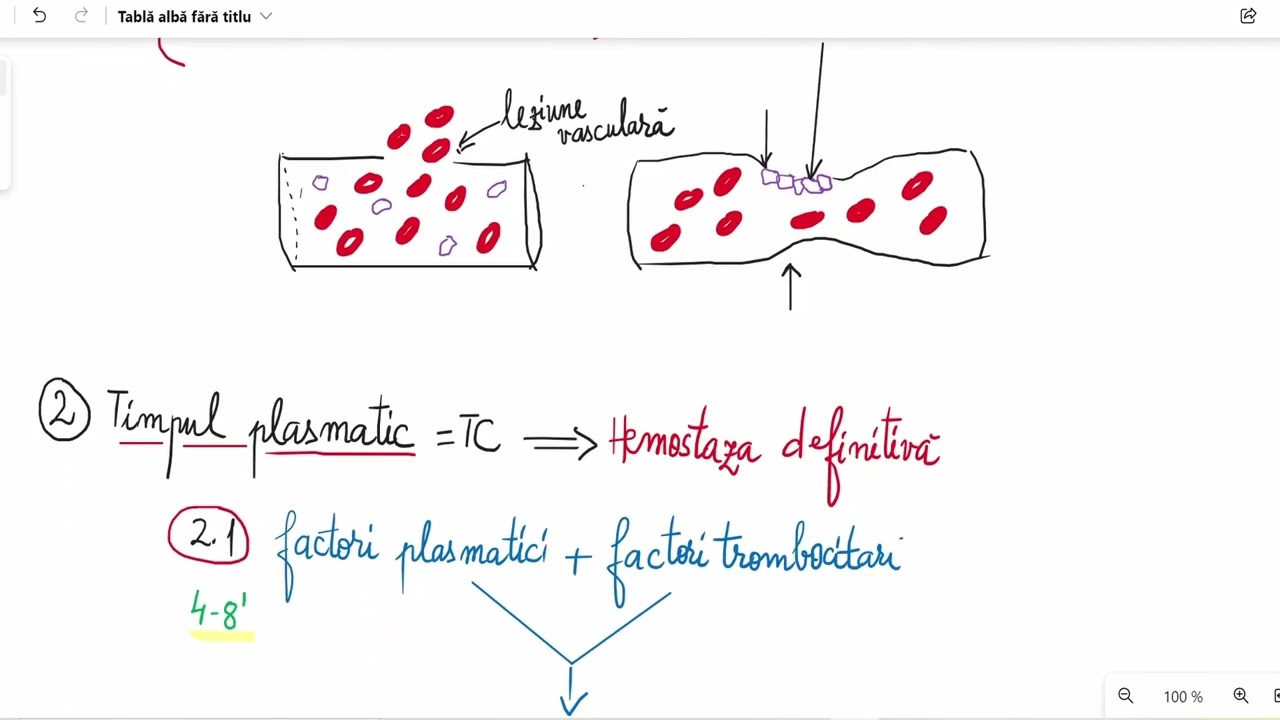 Tablă albă fără titlu
leziune
vasculară
2 Timpul plasmatic = TC ⟹ Hemostaza definitivă
2.1 factori plasmatici + factori trombocitari
4-8'
100 %